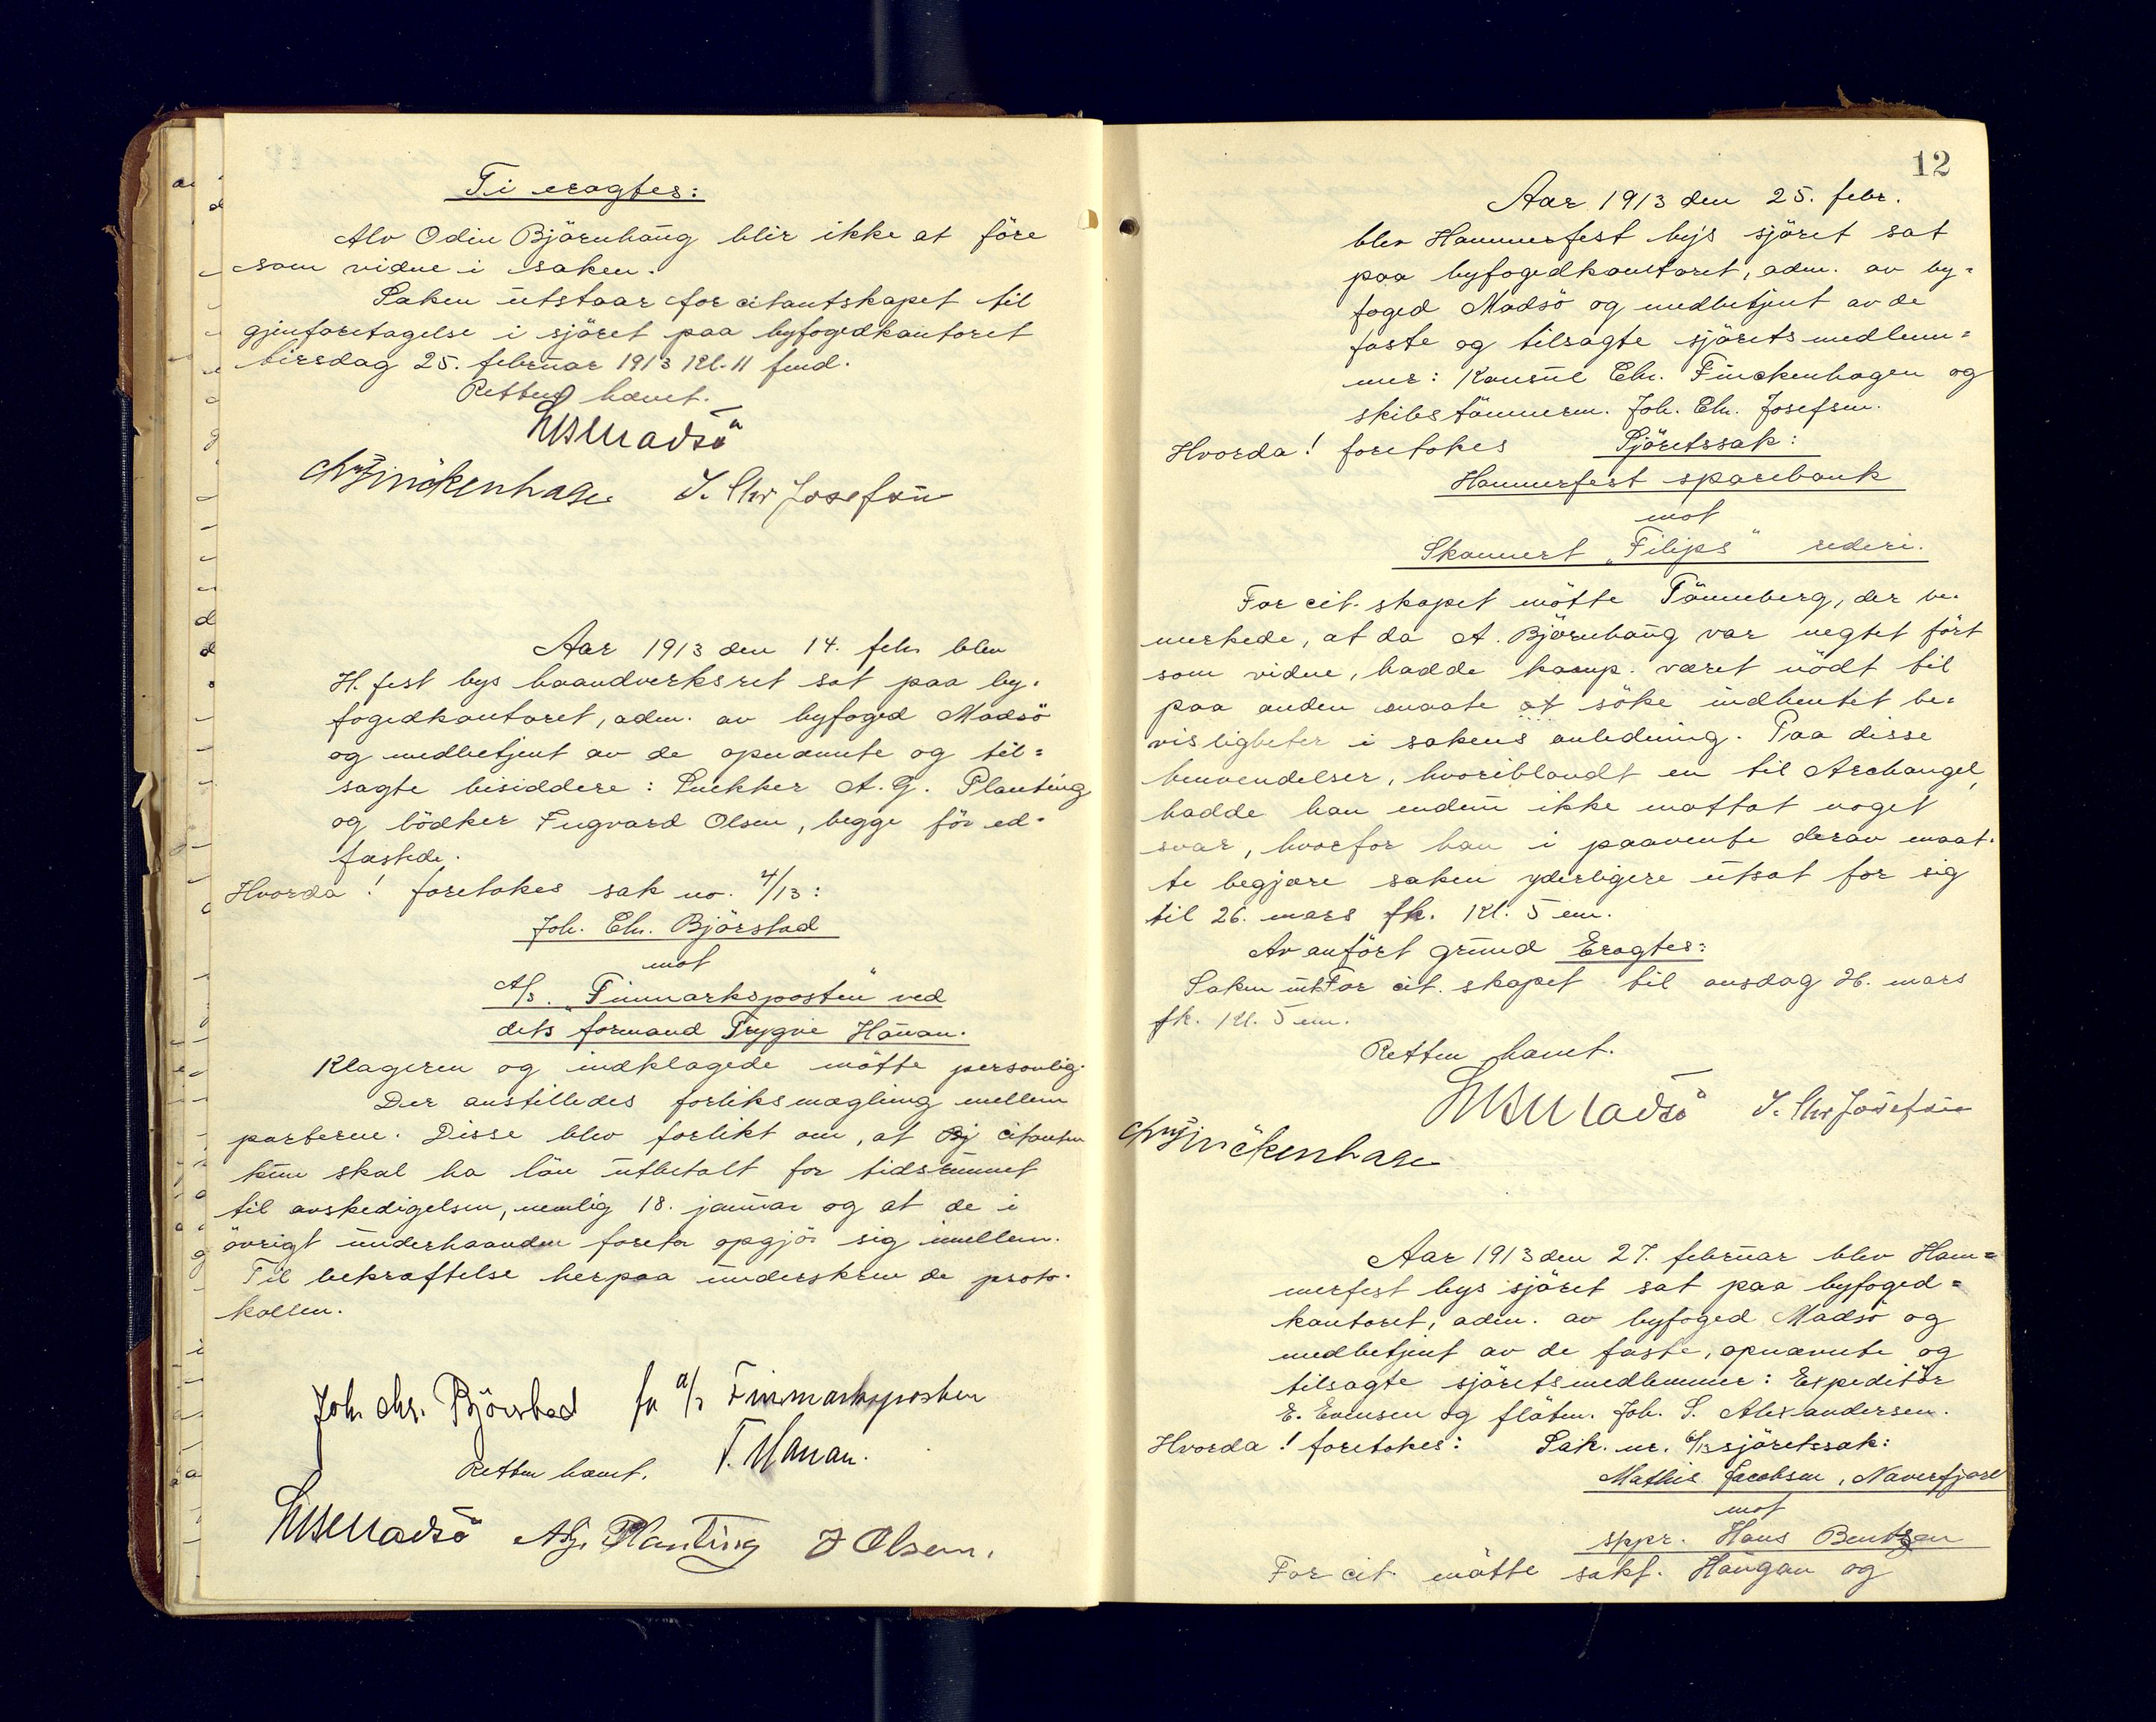 Ti eragtes:
Alv Odin Björnhaug blir ikke at före
som vidne i saken.
Saken utstaar for citantskapet til
gjenforetagelse i sjöret paa byfogedkontoret
tirsdag 25. februar 1913 kl. 11 fmd.
Retten hævet.
Madsö
Chr Finckenhagen J. Chr Josefsen
Aar 1913 den 14. febr blev
H.fest bys haandverksret sat paa by-
fogedkontoret, adm. av byfoged Madsö
og medbetjent av de opnævnte og til=
sagte bisiddere: Snekker A. G. Planting
og bödker Ingvard Olsen, begge för ed-
fæstede.
Hvorda! foretokes sak no. 4/13:
Joh. Chr. Björstad
mot
A/s. "Finmarksposten" ved
dets formand Trygve Hauan.
Klageren og indklagede mötte personlig.
Der anstilledes forliksmægling mellem
parterne. Disse blev forlikt om, at Bj citanten
kun skal ha lön utbetalt for tidsrummet
til avskedigelsen, nemlig 18. januar og at de i
övrigt underhaanden foretar opgjör sig imellem.
Til bekræftelse herpaa underskrev de proto-
kollen.
Joh. Chr. Björstad for a/s Finmarksposten
T. Hauan.
Retten hævet.
Madsö A.G. Planting J Olsen.
12
Aar 1913 den 25. febr.
blev Hammerfest bys sjöret sat
paa byfogedkontoret, adm. av by=
foged Madsö og medbetjent av de
faste og tilsagte sjöretsmedlem=
mer: Konsul Chr. Finckenhagen og
skibstömmerm. Joh. Chr. Josefsen.
Hvorda! foretokes Sjöretssak:
Hammerfest sparebank
mot
Skonnert "Filips" rederi.
For cit.skapet mötte Tönneberg, der be-
merkede, at da A. Björnhaug var negtet fört
som vidne, hadde komp. været nödt til
paa anden maate at söke indhentet be-
visligheter i sakens anledning. Paa disse
henvendelser, hvoriblandt en til Archangel,
hadde han endnu ikke mottat noget
svar, hvorfor han i paavente derav maat-
te begjære saken yderligere utsat for sig
til 26. mars fk. kl. 5 em.
Av anfört grund Eragtes:
Saken uts For cit.skapet til onsdag 26. mars
fk. kl. 5 em.
Retten hævet.
Madsö J. Chr Josefsen
Chr Finckenhagen
Aar 1913 den 27. februar blev Ham=
merfest bys sjöret sat paa byfoged=
kontoret, adm. av byfoged Madsö og
medbetjent av de faste, opnævnte og
tilsagte sjöretsmedlemmer: Expeditör
E. Evensen og flötm. Joh. S. Alexandersen.
Hvorda! foretokes: Sak. nr. 6/13 sjöretssak:
Mathis Jacobsen, Naverfjord
mot
sppr. Hans Bentzen
For cit. mötte sakf. Haugan og